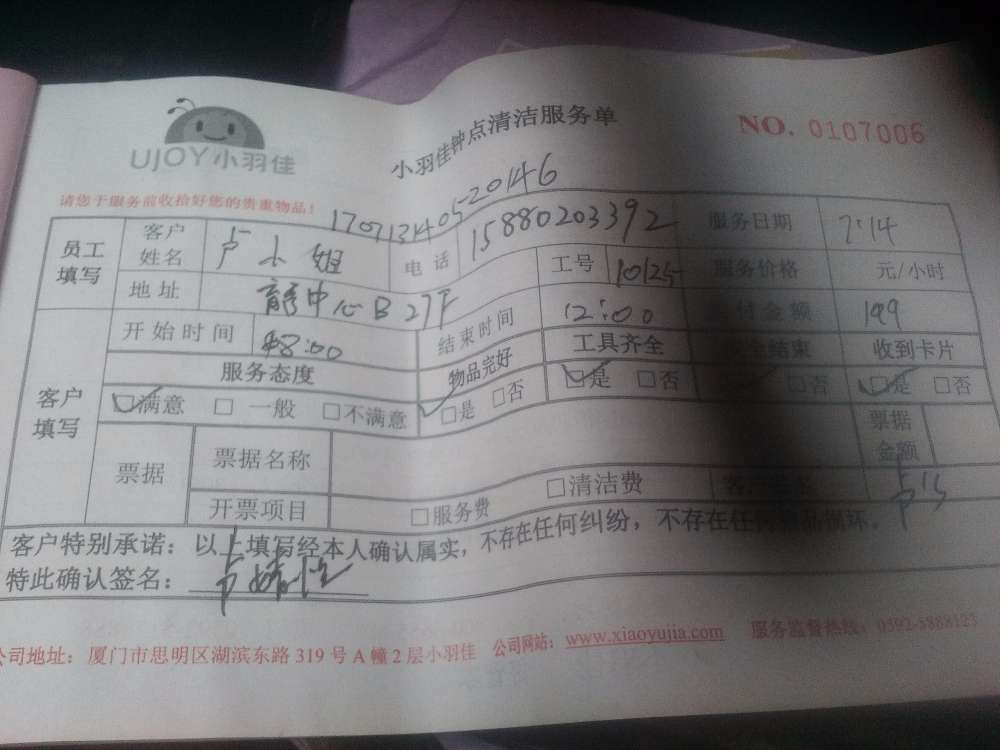 UJOY小羽佳
小羽佳钟点清洁服务单
NO. 0107006
请您于服务前收拾好您的贵重物品!
员工填写 客户姓名 卢小姐 电话 15880203392 服务日期 7.14
地址 中心B27F 工号 10125 服务价格 元/小时
客户填写 开始时间 8:00 结束时间 12:00 付金额 199
服务态度 物品完好 工具齐全 结束 收到卡片
□满意 □一般 □不满意 □是 □否 □是 □否 □否 □是 □否
票据 票据名称 票据金额
开票项目 □服务费 □清洁费
客户特别承诺:以上填写经本人确认属实,不存在任何纠纷,不存在任何物品损坏。
特此确认签名:卢
公司地址:厦门市思明区湖滨东路319号A幢2层小羽佳 公司网站:www.xiaoyujia.com 服务监督热线:0592-5888123